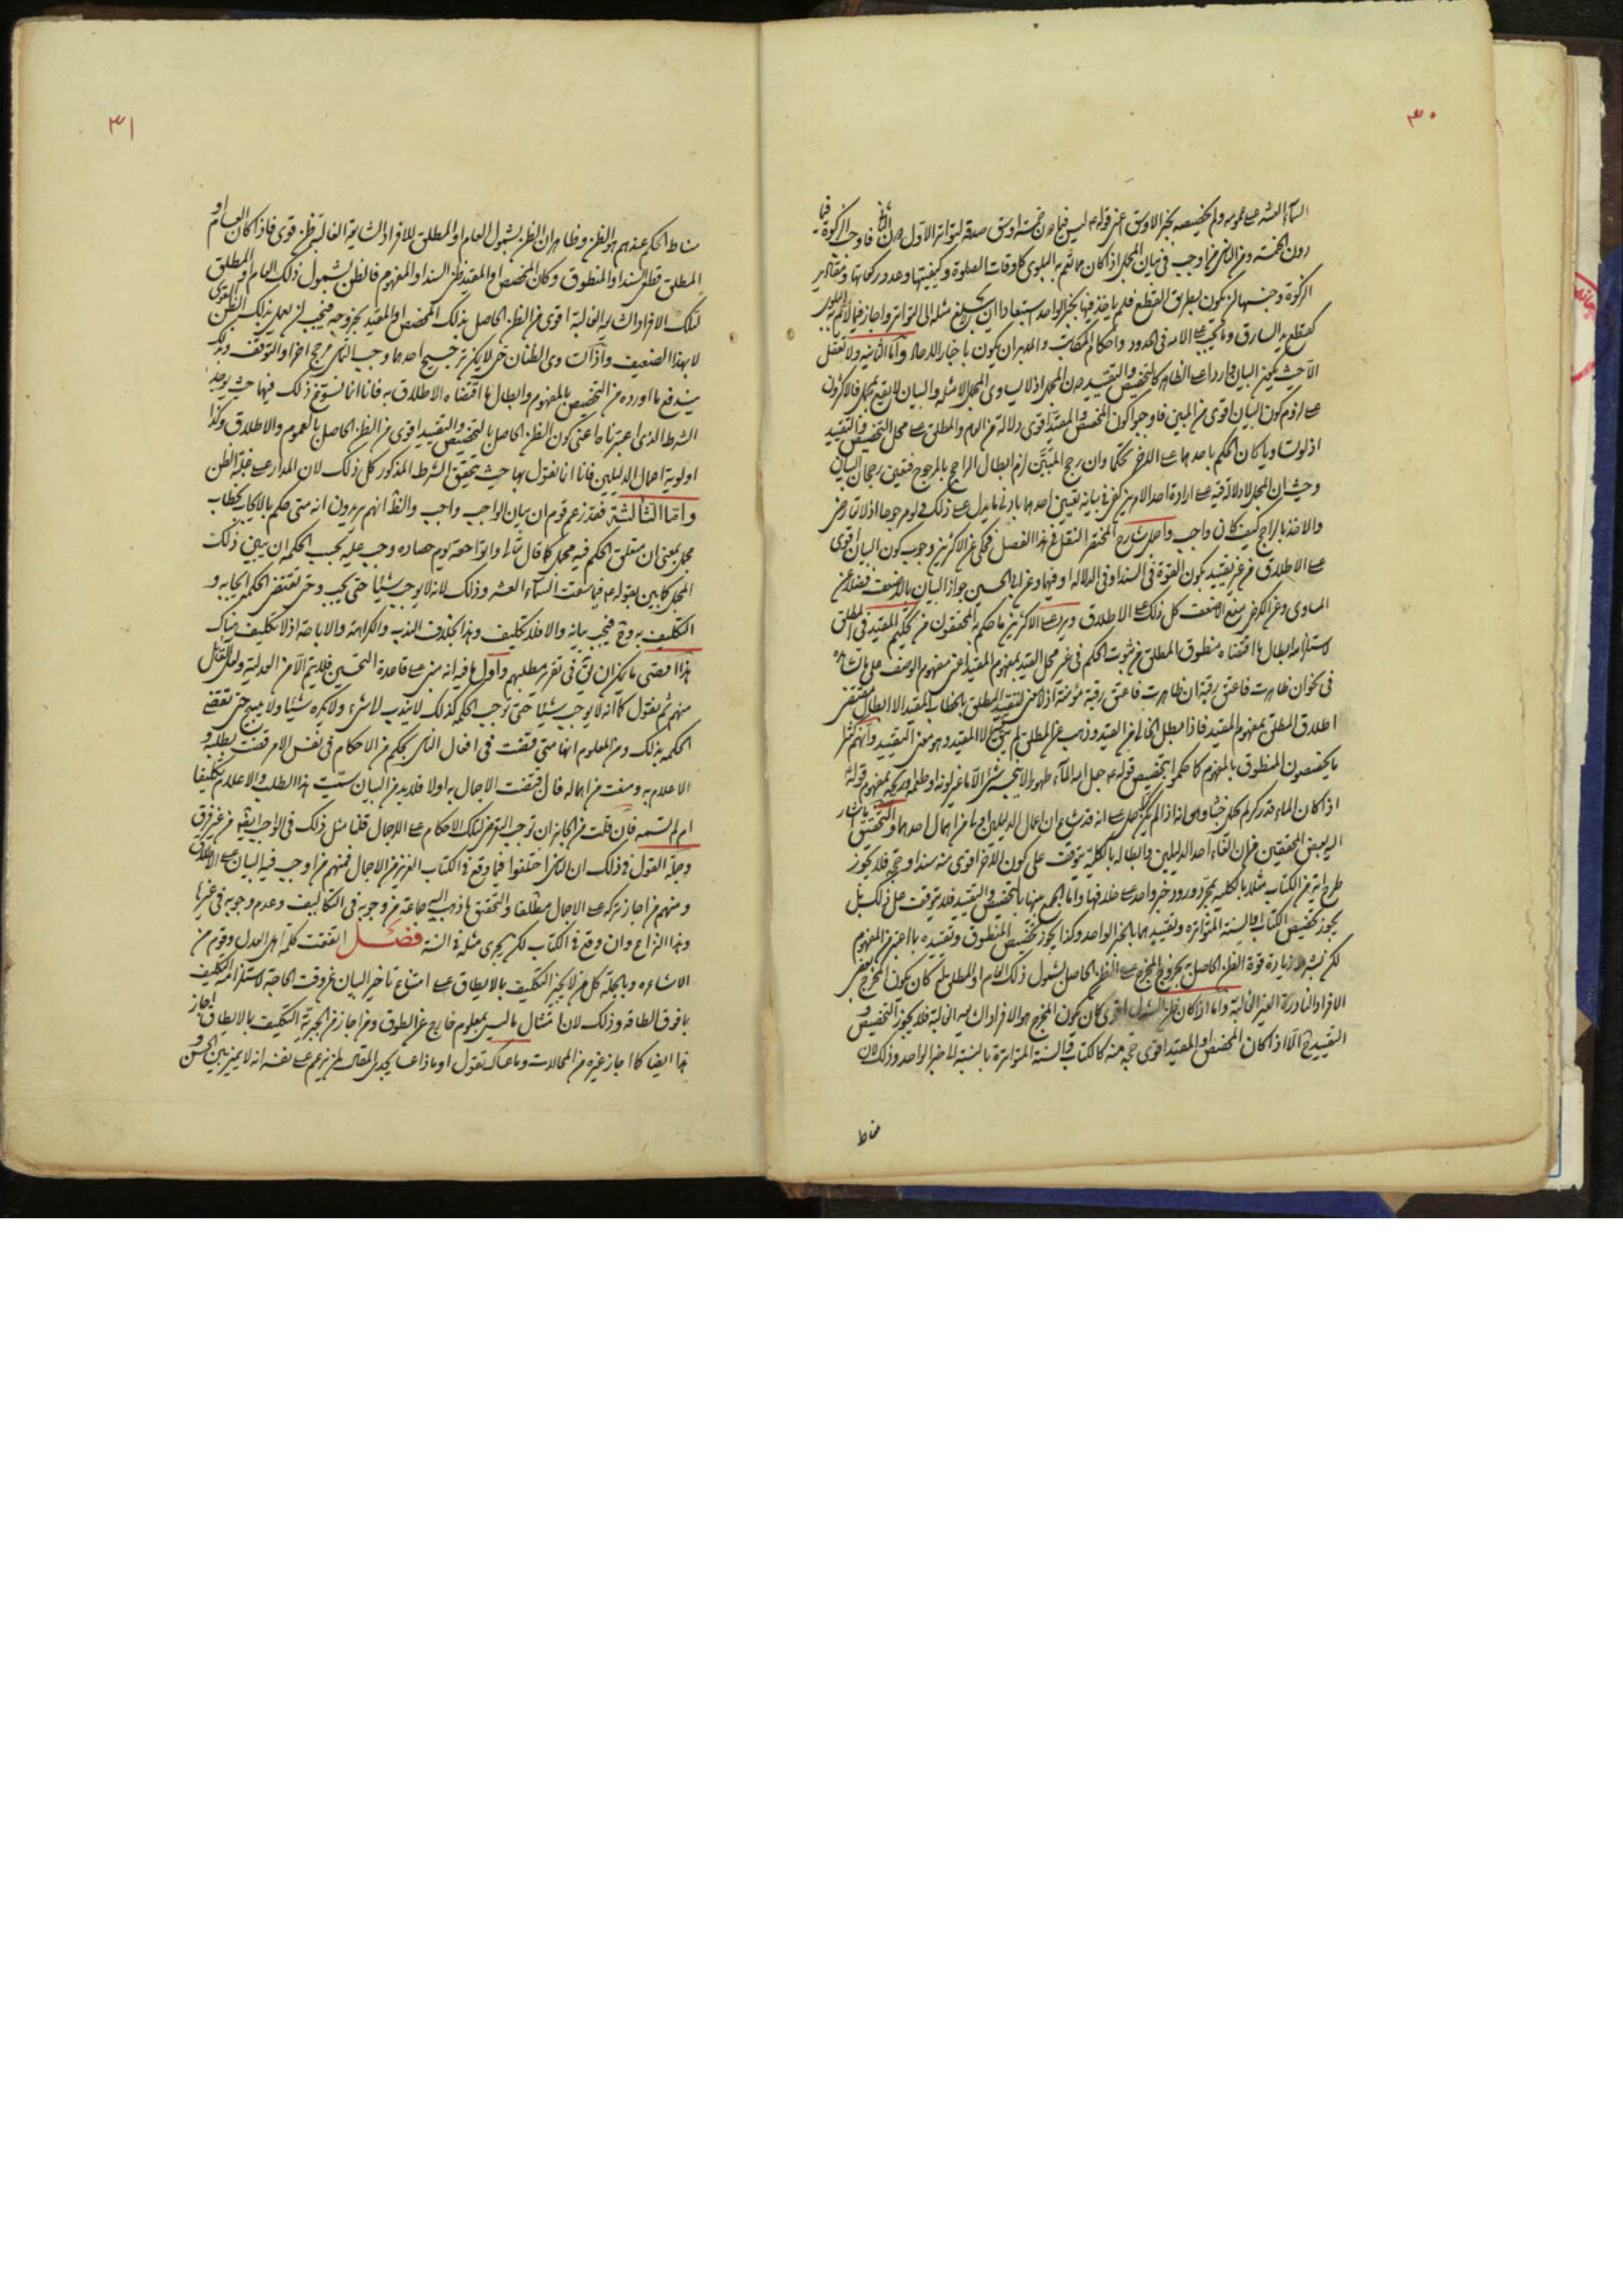 ٣٠
السماء العشر على عمومه ولم يخصصه بخبر الاوسق اعنى قوله ع ليس فيما دون خمسة اوسق صدقة لتواتر الاول دون الثانى فاوجب الزكوة فيما
دون الخمسة ومن الناس من اوجب فى بيان المجمل اذا كان مما تعم به البلوى كاوقات الصلوة وكيفيتها وعدد ركعاتها ومقادير
الزكوة وجنسها ان يكون بطريق القطع فلم ياخذ فيها بخبر الواحد استبعادا ان لا يبلغ مثله الى التواتر واجاز فيما لا تعم به البلوى
كقطع يد السارق وما يجب على الائمة فى الحدود واحكام المكاتب والمدبر ان يكون باخبار الاحاد واما الثانية ولا تعقل
الا حيث يكون البيان واردا على الظاهر كالتخصيص والتقييد دون المجمل اذ لا يساوى المجمل الا مثله والبيان لا يقع بمجمل فالاكثرون
على لزوم كون البيان اقوى من المبين فاوجبوا كون المخصص والمقيد اقوى دلالة من العام والمطلق على محل التخصيص والتقييد
اذ لو تساويا كان الحكم باحدهما على الاخر تحكما وان رجح المبين لزم ابطال الراجح بالمرجوح فتعين رجحان البيان
وحيث ان المجمل لا دلالة فيه على ارادة احد الامرين كفى فى بيانه تعيين احدهما بادنى ما يدل على ذلك ولو مرجوحا اذ لا تعارض
والاخذ بالراجح كيف كان واجب واصل شارح المختصر النقل فى هذا الفصل فحكى عن الاكثرين وجوب كون البيان اقوى
على الاطلاق من غير تقييد بكون القوة فى السند او فى الدلالة او فيهما وعن ابى الحسين جواز البيان بالاضعف فضلا عن
المساوى وعن الكرخى منع الاضعف كل ذلك على الاطلاق ويرد على الاكثرين ما حكم به المحققون من تحكيم المقيد فى المطلق
لاستلزامه ابطال ما اقتضاه منطوق المطلق من ثبوت الحكم فى غير محل القيد بمفهوم المقيد اعنى مفهوم الوصف على ما تشاهده
فى نحو ان ظاهرت فاعتق رقبة ان ظاهرت فاعتق رقبة مؤمنة اذ لا معنى لتقييد المطلق بالخطاب المقيد الا ابطال مقتضى
اطلاق المطلق بمفهوم المقيد فاذا ابطل الخالى من القيد وذهب عن المطلق لم يبق الا المقيد وهو معنى التقييد وانهم كثيرا
ما يخصصون المنطوق بالمفهوم كما حكموا بتخصيص قوله ع جعل الله الماء طهورا لا ينجسه شئ الا ما غير لونه او طعمه او ريحه بمفهوم قوله ع
اذا كان الماء قدر كر لم يحمل خبثا وهو انه اذا لم يكن حمل على انه قد شاع ان اعمال الدليلين اولى من اهمال احدهما والتحقيق ما اشار
اليه بعض المحققين من ان القاء احد الدليلين وابطاله بالكلية يتوقف على كون الاخر اقوى منه سندا وحجة فلا يجوز
طرح اية من الكتاب مثلا بالكلية بمجرد ورود خبر واحد على خلافها واما الجمع بينهما بالتخصيص والتقييد فلا يتوقف على ذلك بل
يجوز تخصيص الكتاب والسنة المتواترة وتقييدهما بالخبر الواحد وكذا يجوز تخصيص المنطوق وتقييده بما اعتبر من المفهوم
لكن بشرط زيادة قوة الظن الحاصل بخروج المخرج على الظن الحاصل بشمول ذلك العام او المطلق له كان يكون المخرج بعض
الافراد النادرة الغير الغالبة واما اذا كان ظن الشمول اقوى كان يكون المخرج هو الافراد الشايعة الغالبة فلا يجوز التخصيص و
التقييد ح الا اذا كان المخصص او المقيد اقوى حجة منه كالكتاب والسنة المتواترة بالنسبة الى خبر الواحد وذلك لان
مناط
٣١
مناط الحكم عندهم هو الظن وظاهر ان الظن بشمول العام او المطلق للافراد الشايعة الغالبة ظن قوى فاذا كان العام او
المطلق قطعى السند او المنطوق وكان المخصص او المقيد ظنى السند او المفهوم فالظن بشمول ذلك العام او المطلق
لتلك الافراد الشايعة الغالبة اقوى من الظن الحاصل بذلك المخصص او المقيد بخروجه فيجب ان يعمل بذلك الظن القوى
لا بهذا الضعيف واذا تساوى الظنان حتى لا يمكن ترجيح احدهما وجب التماس مرجح اخر او التوقف وبذلك
يندفع ما اورده من التخصيص بالمفهوم وابطال ما اقتضاه الاطلاق به فانا انما نسوغ ذلك فيما حيث يوجد
الشرط الذى اعتبرناه اعنى كون الظن الحاصل بالتخصيص والتقييد اقوى من الظن الحاصل بالعموم والاطلاق وكذا
اولوية اعمال الدليلين فانا انما نقول بها حيث يتحقق الشرط المذكور كل ذلك لان المدار على غلبة الظن
واما الثالثة فقد زعم قوم ان بيان الواجب واجب والظ انهم يريدون انه متى حكم بالايجاب بخطاب
مجمل بمعنى ان متعلق الحكم فيه مجمل كما قال تعالى واتوا حقه يوم حصاده وجب عليه بحسب الحكمة ان يبين ذلك
المجمل كما بين بقوله ع فيما سقت السماء العشر وذلك لانه لا يوجب شيئا حتى يجب وحتى تقتضى الحكمة ايجابه و
التكليف به وح فيجب بيانه والا فلا تكليف وهذا بخلاف الندب والكراهة والاباحة اذ لا تكليف هناك
هذا اقصى ما يمكن ان يق فى تقرير مطلبهم واول ما فيه انه مبنى على قاعدة التحسين فلا يتم الا من العدلية ولعل القائل
منهم ثم نقول كما انه لا يوجب شيئا حتى توجب الحكمة كذلك لا يندب لشئ ولا يكره شيئا ولا يبيح حتى تقتضى
الحكمة بذلك ومن المعلوم انها متى قضت فى افعال الناس بحكم من الاحكام فى نفس الامر قضت بطلبه و
الاعلام به ومنعت من اهماله فان اقتضت الاجمال به اولا فلا بد من البيان سميت هذا الطلب والاعلام تكليفا
ام لم تسمه فان قلت من الجايز ان توجب التعرض لتلك الاحكام على الاجمال قلنا مثل ذلك فى الواجب ايضا من غير فرق
وجملة القول فى ذلك ان الناس اختلفوا فيما وقع فى الكتاب العزيز من الاجمال فمنهم من اوجب فيه البيان على الاطلاق
ومنهم من اجاز تركه على الاجمال مطلقا والتحقيق ما ذهب اليه جماعة من وجوبه فى التكاليف وعدم وجوبه فى غيرها
وهذا النزاع وان وقع فى الكتاب لكن يجرى مثله فى السنة فصل اتفقت كلمة اهل العدل وقوم من
الاشاعرة وبالجملة كل من لا يجيز التكليف بما لا يطاق على امتناع تاخير البيان عن وقت الحاجة لاستلزامه التكليف
بما فوق الطاقة وذلك لان امتثال ما ليس بمعلوم خارج عن الطوق ومن اجاز من الجبرية التكليف بما لا يطاق اجاز
هذا ايضا كما اجاز غيره من المحالات وما عساك تقول او ماذا عسى يجدى المقال لمن يزعم على نفسه انه لا يميز بين الحسن و